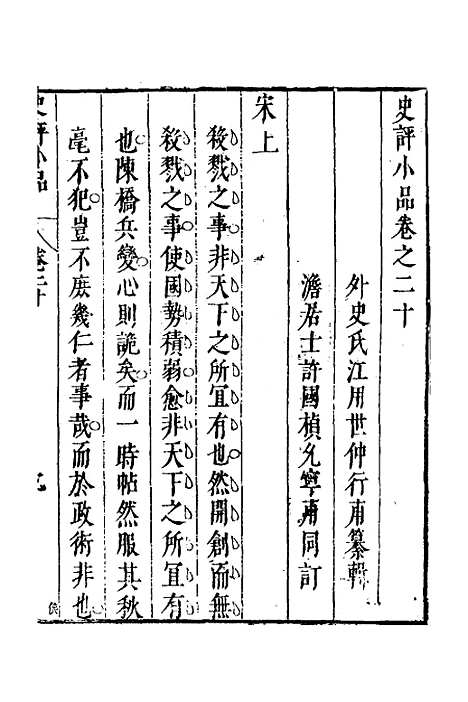 史評小品卷之二十
外史氏江用世仲行甫纂輯
澹居士許國楨允寧甫同訂
宋上
殺戮之事非天下之所宜有也然開創而無
殺戮之事使國勢積弱愈非天下之所宜有
也陳橋兵變心則詭矣而一時帖然服其秋
毫不犯豈不庶幾仁者事哉而於政術非也
史評小品
卷二十